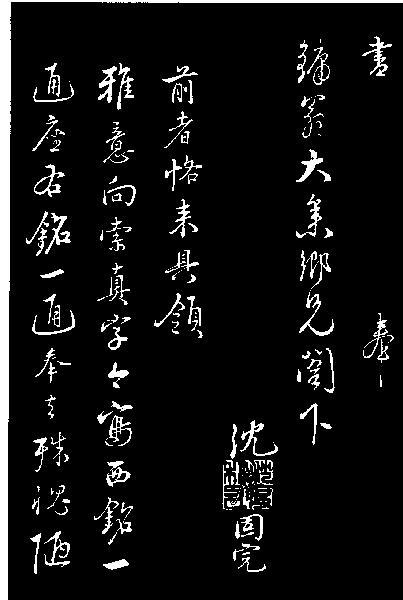 書 奉
鏞翁大集鄉兄閣下
沈固完
前者恪来具領
雅意向索真字今寫西銘一
通座右銘一通奉去殊愧陋